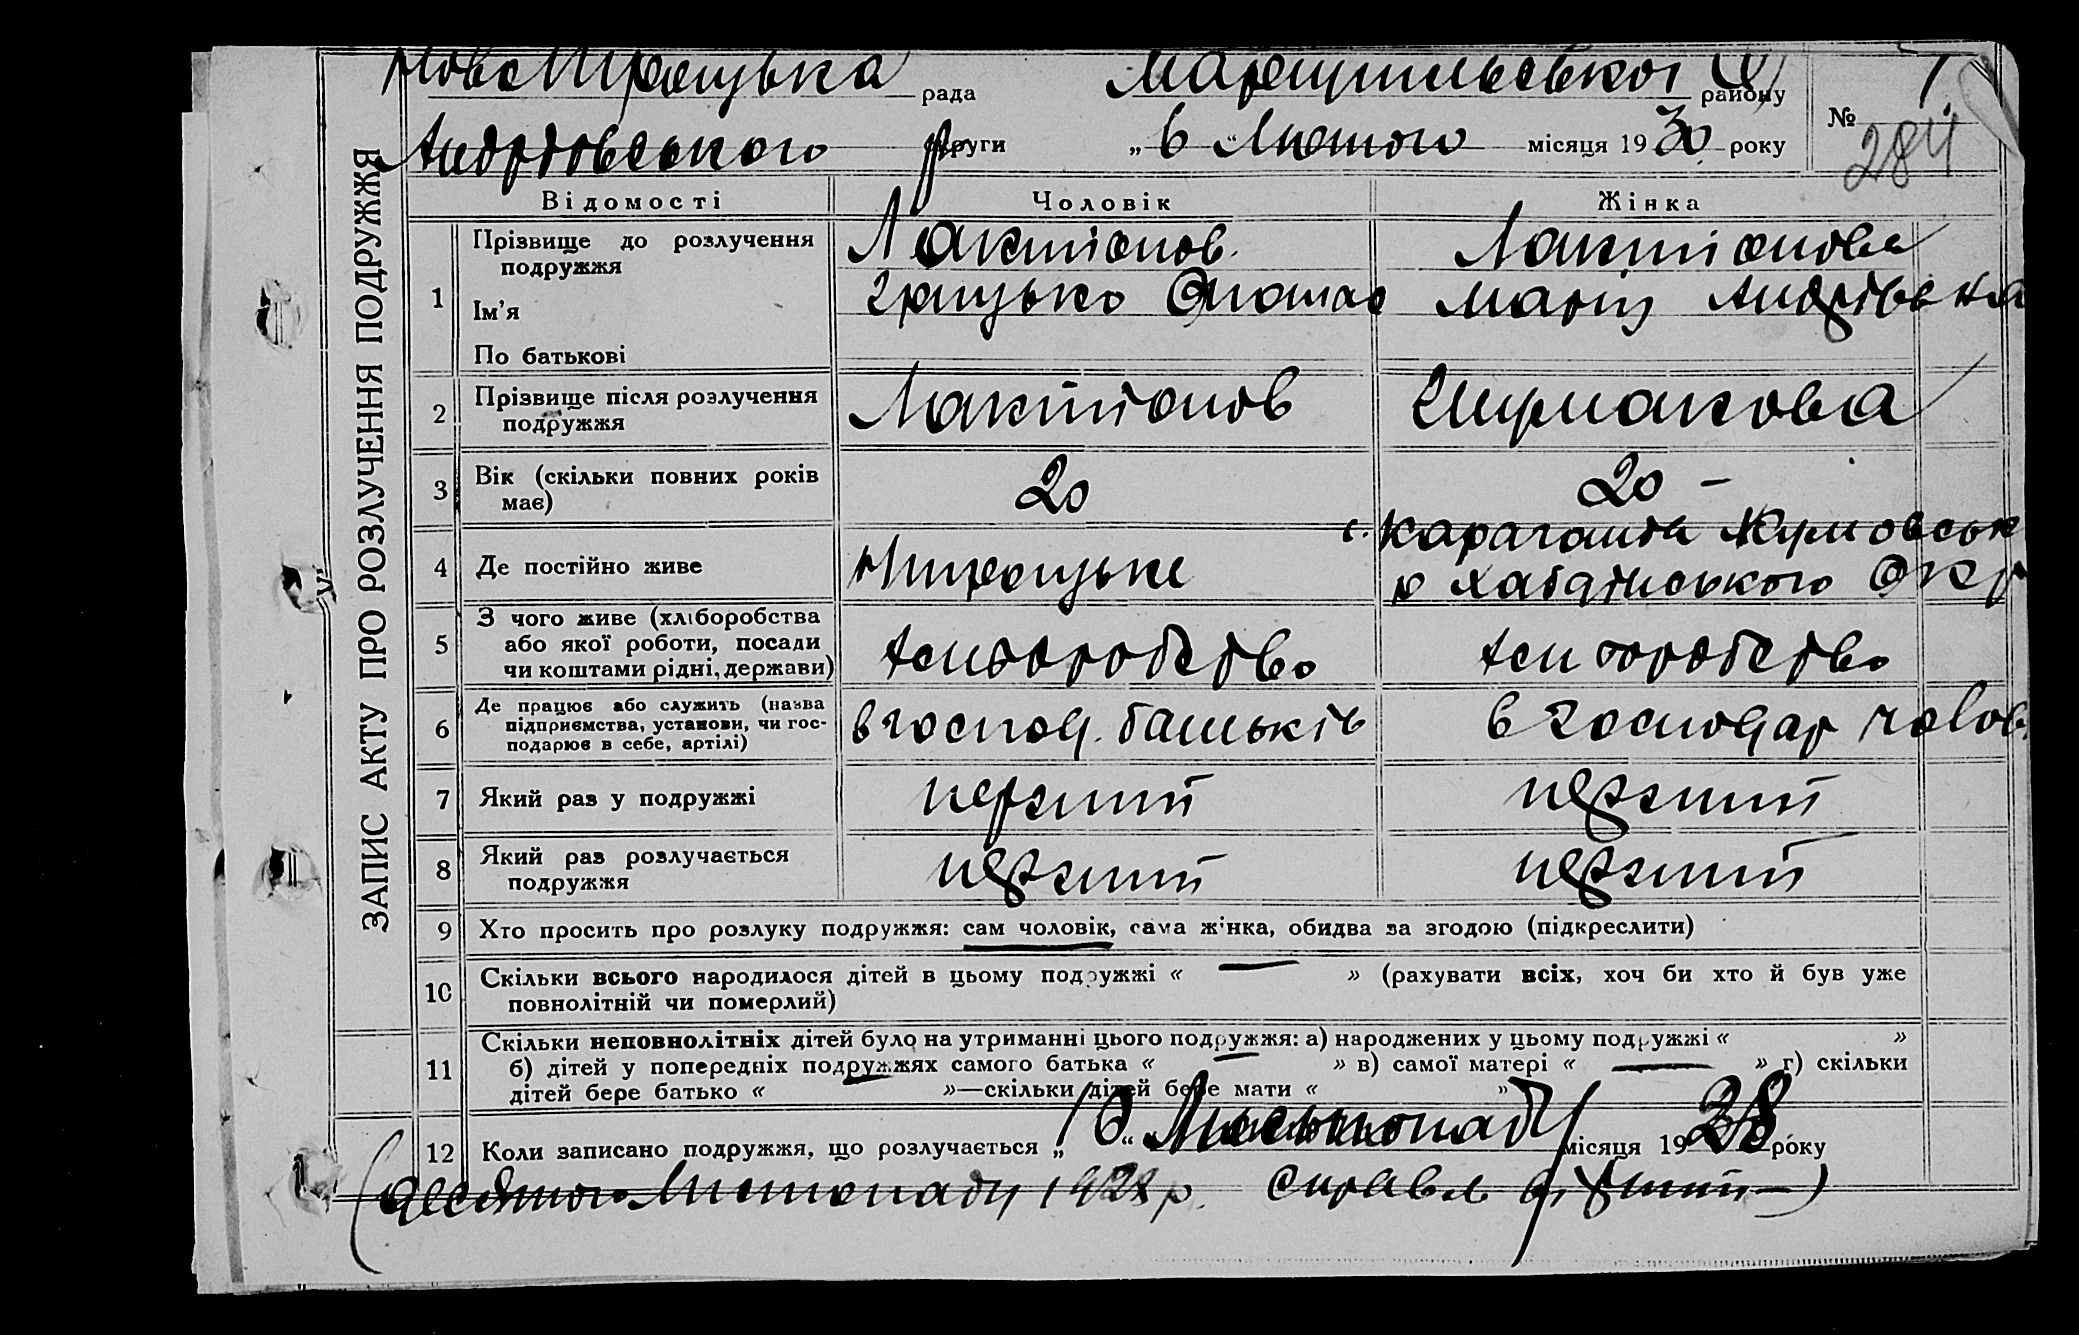 НовоТроіцька рада Маріупільської О. району № 7
Андріївського округи „6“ Лютого місяця 1930 року 284
ЗАПИС АКТУ ПРО РОЗЛУЧЕННЯ ПОДРУЖЖЯ
Відомості Чоловік Жінка
1 Прізвище до розлучення подружжя Лактіонов Лактіонова
Ім’я Грицько Марія Андріівна
По батькові
2 Прізвище після розлучення подружжя Лактіонов
3 Вік (скільки повних років має) 20 20 –
4 Де постійно живе с.
Окр
5 З чого живе (хліборобства
або якої роботи, посади
чи коштами рідні, держави)
6 Де працює або служить (назва
підприємства, установи, чи гос-
подарює в себе, артілі) в господ. батьків в господар чолов.
7 Який раз у подружжі перший перший
8 Який раз розлучається
подружжя перший перший
9 Хто просить про розлуку подружжя: сам чоловік, сама жінка, обидва за згодою (підкреслити)
10 Скільки всього народилося дітей в цьому подружжі « — » (рахувати всіх, хоч би хто й був уже
повнолітній чи померлий)
11 Скільки неповнолітніх дітей було на утриманні цього подружжя: а) народжених у цьому подружжі « »
б) дітей у попередніх подружжях самого батька « — » в) самої матері « — » г) скільки
дітей бере батько « »—скільки дітей бере мати « »
12 Коли записано подружжя, що розлучається „10“ Листопаду місяця 1928 року
(десятого Листопаду 1928 р.